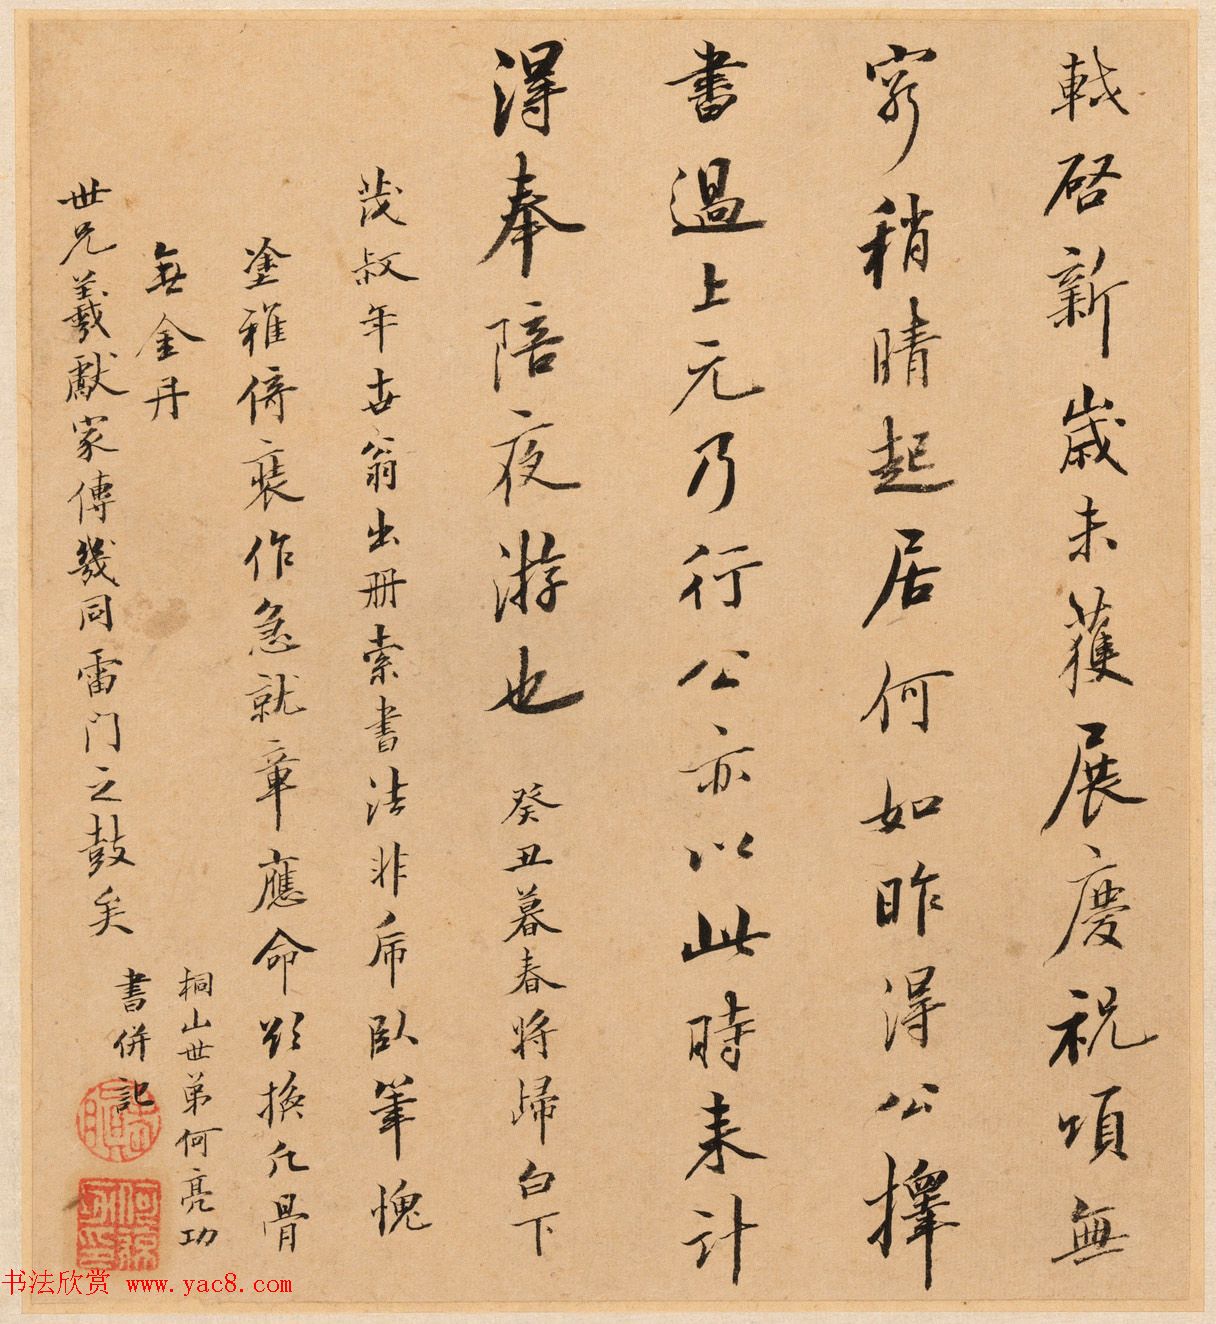 軾啓新嵗未獲展慶祝頌無
窮稍晴起居何如昨得公擇
書過上元乃行公亦以此時来計
得奉陪夜游也 癸丑暮春将歸白下
茂叔年世翁出册索書法非乕臥筆愧
塗雅倚裝作急就章應命欲換凡骨
無金丹
世兄羲獻家傳幾同雷門之鼓矣
桐山世弟何亮功
書併記
书法欣赏 www.yac8.com